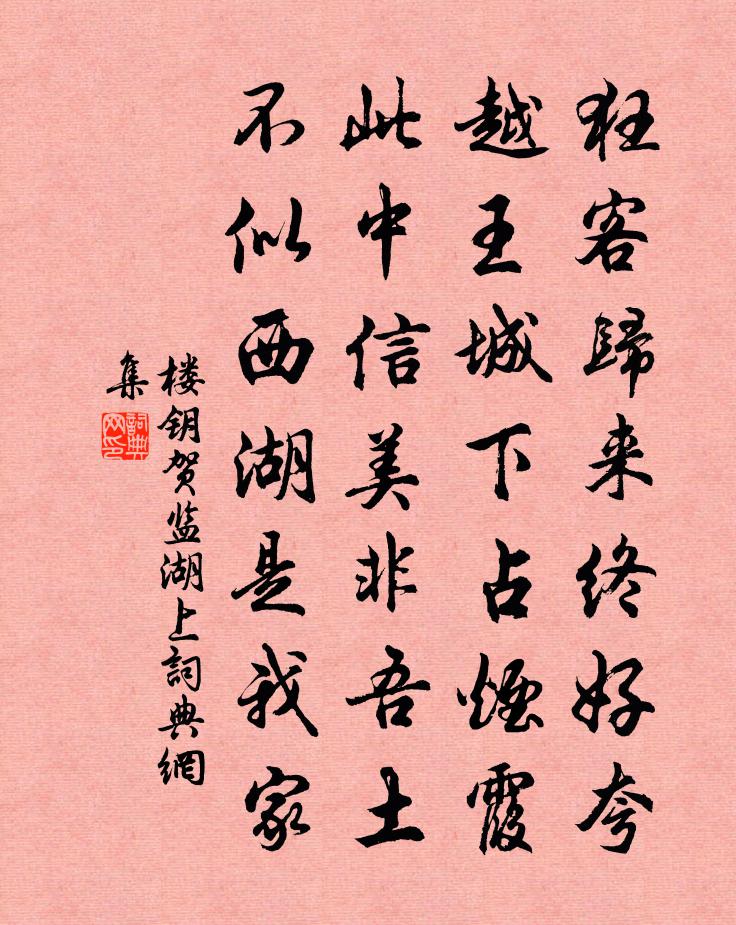 狂客歸来终好夸
越王城下占煙霞
此中信美非吾土
不似西湖是我家
楼钥贺监湖上詞典網
集
詞典网印